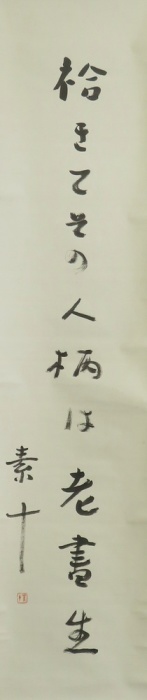 袷きてその人柄は老畫生
素十